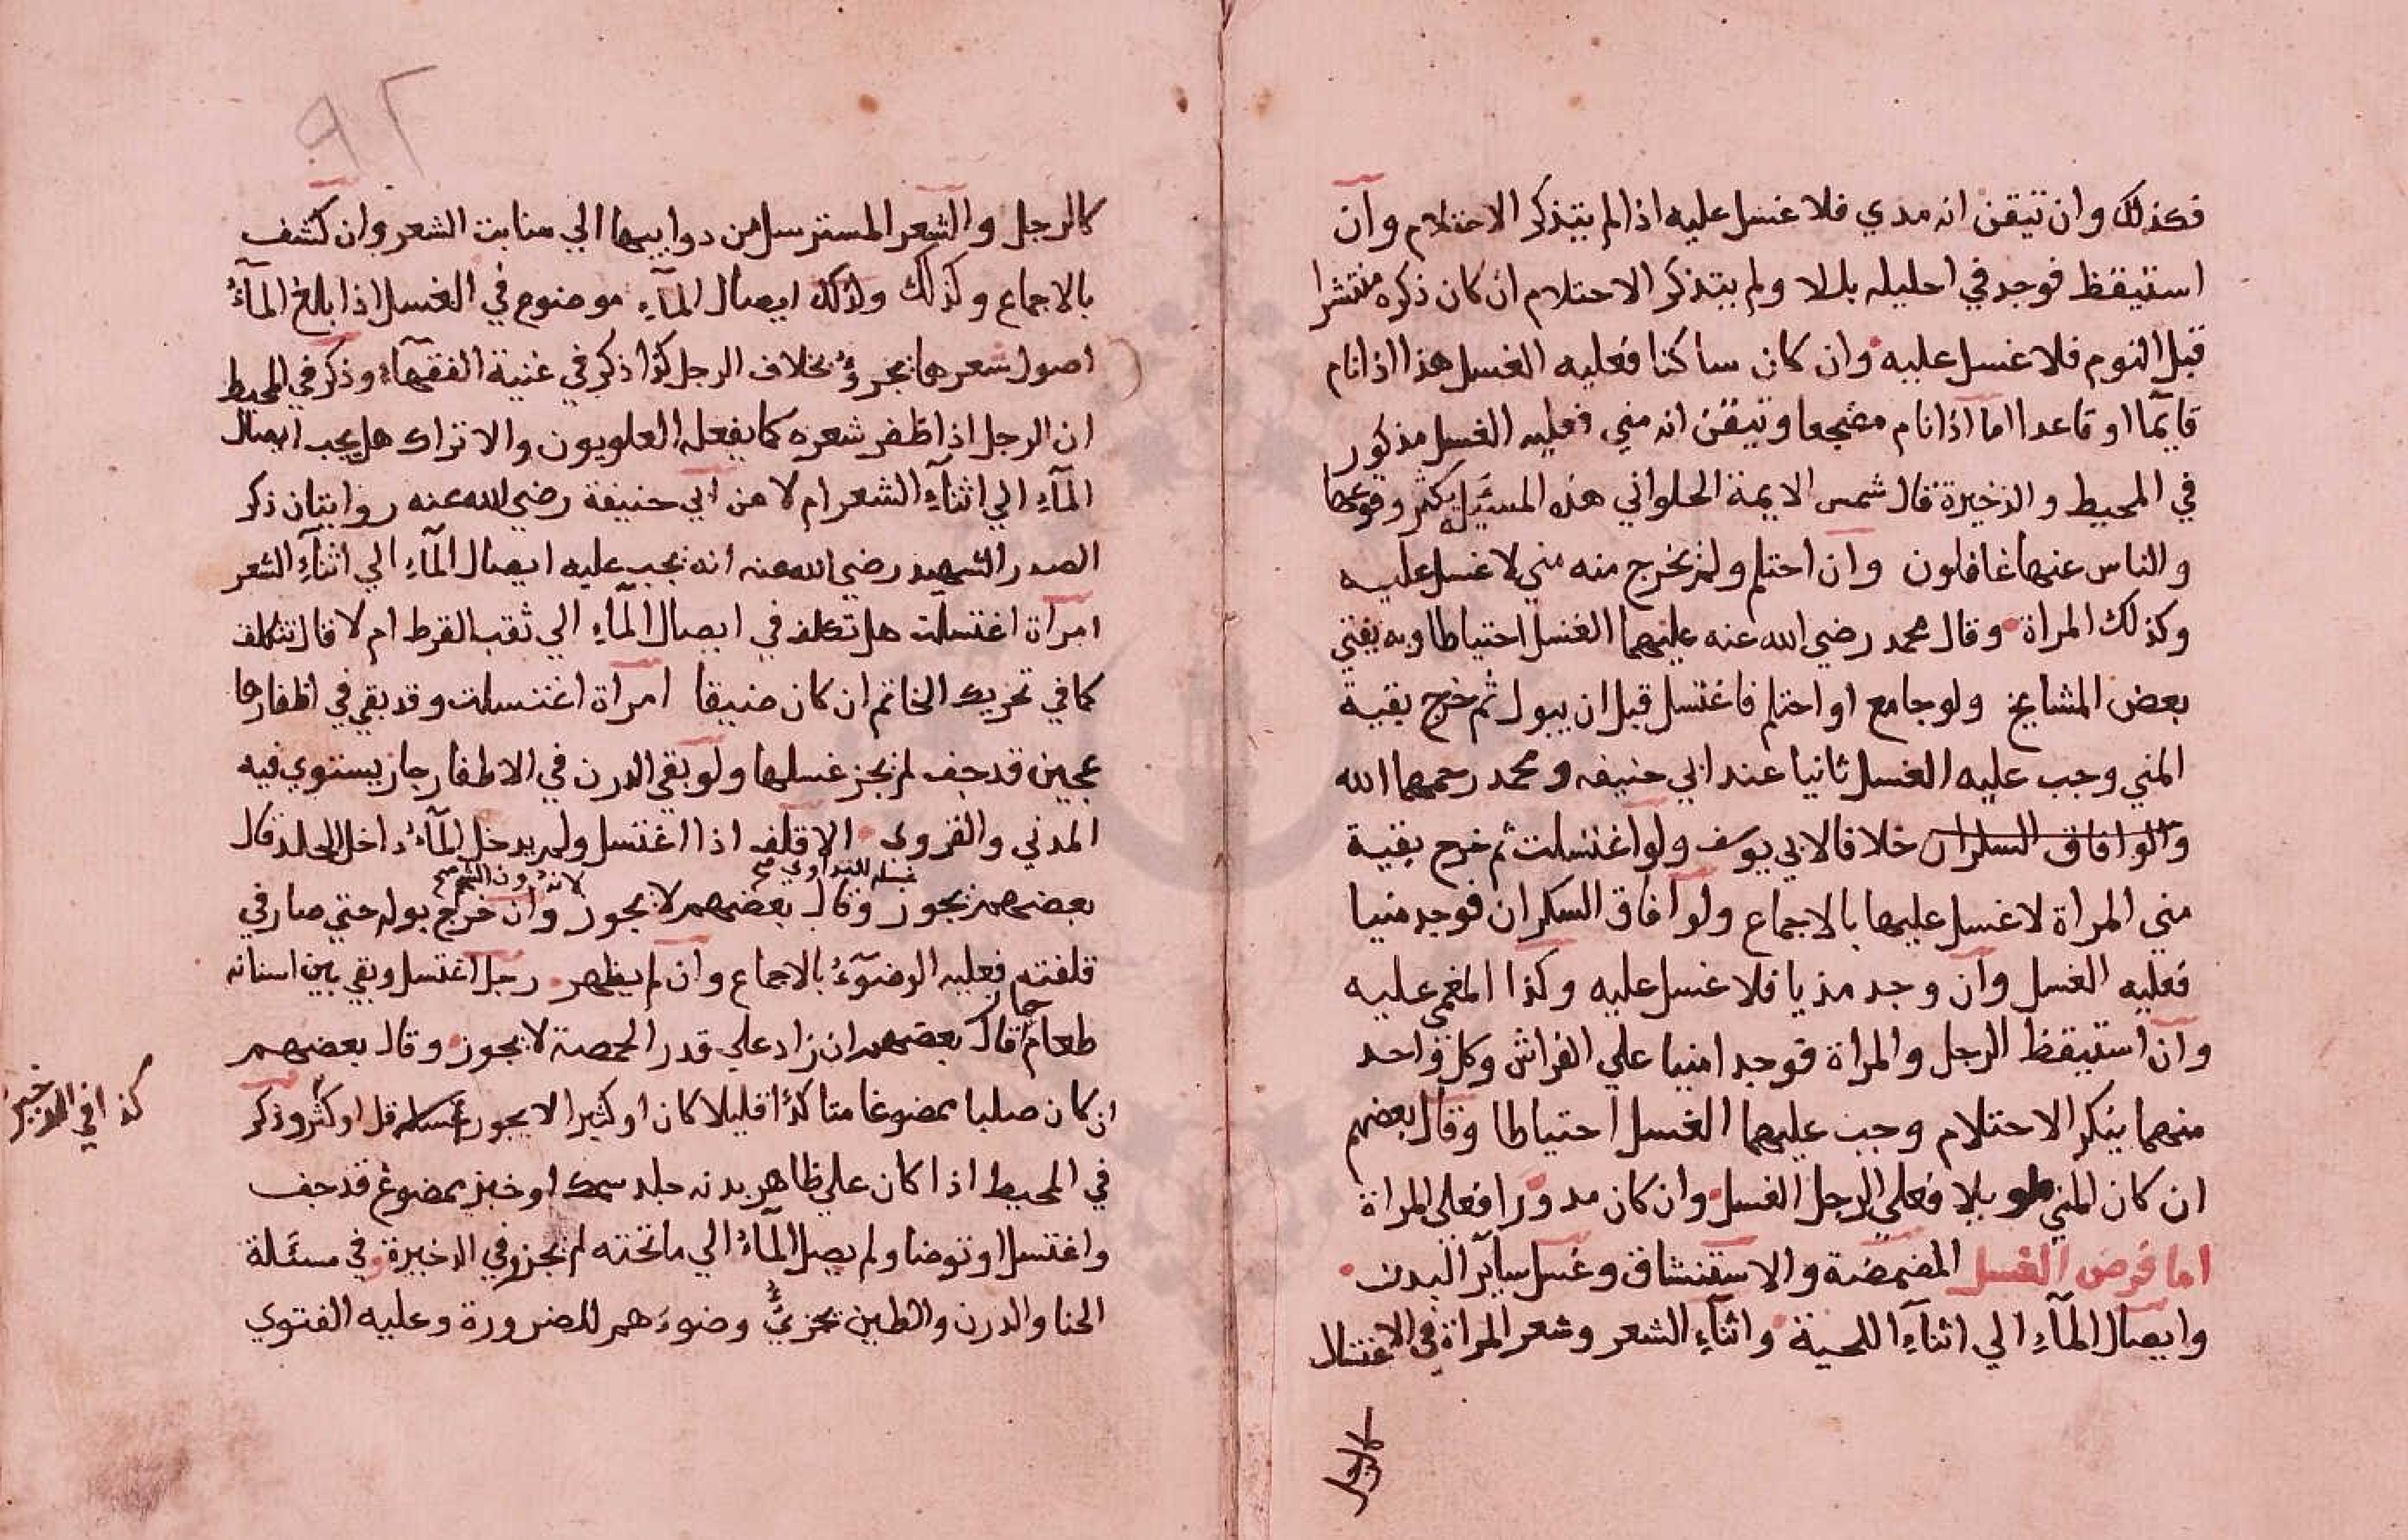 فكذلك وان تيقن انه مدي فلا غسل عليه اذا لم يتذكر الاحتلام وان
استيقظ فوجد في احليله بللا ولم يتذكر الاحتلام ان كان ذكره منتشرا
قبل النوم فلا غسل عليه وان كان ساكنا فعليه الغسل هذا اذا نام
قايما او قاعدا اما اذا نام مضجعا وتيقن انه مني فعليه الغسل مذكور
في المحيط والذخيرة قال شمس الايمة الحلواني هذه المسئلة يكثر وقوعها
والناس عنها غافلون وان احتلم ولم يخرج منه مني لا غسل عليه
وكذلك المراة وقال محمد رضي الله عنه عليهما الغسل احتياطا وبه يفتي
بعض المشايخ ولو جامع او احتلم فاغتسل قبل ان يبول ثم خرج بقية
المني وجب عليه الغسل ثانيا عند ابي حنيفه ومحمد رحمهما الله
ولو افاق السكران خلافا لابي يوسف ولو اغتسلت ثم خرج بقية
مني المراة لا غسل عليها بالاجماع ولو افاق السكران فوجد منيا
فعليه الغسل وان وجد مذيا فلا غسل عليه وكذا المغمى عليه
وان استيقظ الرجل والمراة فوجدا منيا علي الفراش وكل واحد
منهما ينكر الاحتلام وجب عليهما الغسل احتياطا وقال بعضهم
ان كان المني طويلا فعلي الرجل الغسل وان كان مدورا فعلي المراة
اما فرض الغسل المضمضة والاستنشاق وغسل سآير البدن
وايصال المآء الي اثنآء اللحية واثنآء الشعر وشعر المراة في الاغتسال
كالرجل
٩٢
كالرجل والشعر المسترسل من دوايبها الي منابت الشعر وان كشف
بالاجماع وكذلك ولذلك ايصال المآء موضوع في الغسل اذا بلغ المآء
اصول شعرها يجزؤ بخلاف الرجل كذا ذكر في غنية الفقهآء وذكر في المحيط
ان الرجل اذا ظفر شعره كما يفعله العلويون والاتراك هل يجب ايصال
المآء الي اثنآء الشعر ام لا عن ابي حنيفة رضي الله عنه روايتان ذكر
الصدر الشهيد رضي الله عنه انه يجب عليه ايصال المآء الي اثنآء الشعر
امراة اغتسلت هل تكلف في ايصال المآء الي ثقب القرط ام لا قال تتكلف
كما في تحريك الخاتم ان كان ضيقا امراة اغتسلت وقد بقي في اظفارها
عجين قد جف لم يجز غسلها ولو بقي الدرن في الاظفار جاز يستوي فيه
المدني والقروي الاقلف اذا اغتسل ولم يدخل المآء داخل الجلد قال
بعضهم يجوز وقال بعضهم لا يجوز وان خرج بوله حتي صار في
قلفته فعليه الوضوء بالاجماع وان لم يظهر رجل اغتسل وبقي بين اسنانه
طعام قال بعضهم ان زاد علي قدر الحمصة لا يجوز وقال بعضهم
ان كان صلبا ممضوغا متاكدا قليلا كان او كثيرا لا يجوز غسله قل او كثر وذكر
كذا في الذخيرة
في المحيط اذا كان علي ظاهر بدنه جلد سمك او خبز ممضوغ قد جف
واغتسل او توضا ولم يصل المآء الي ما تحته لم يجز وفي الدخيرة وفي مسئلة
الحنا والدرن والطين يجزي وضوءهم للضرورة وعليه الفتوي